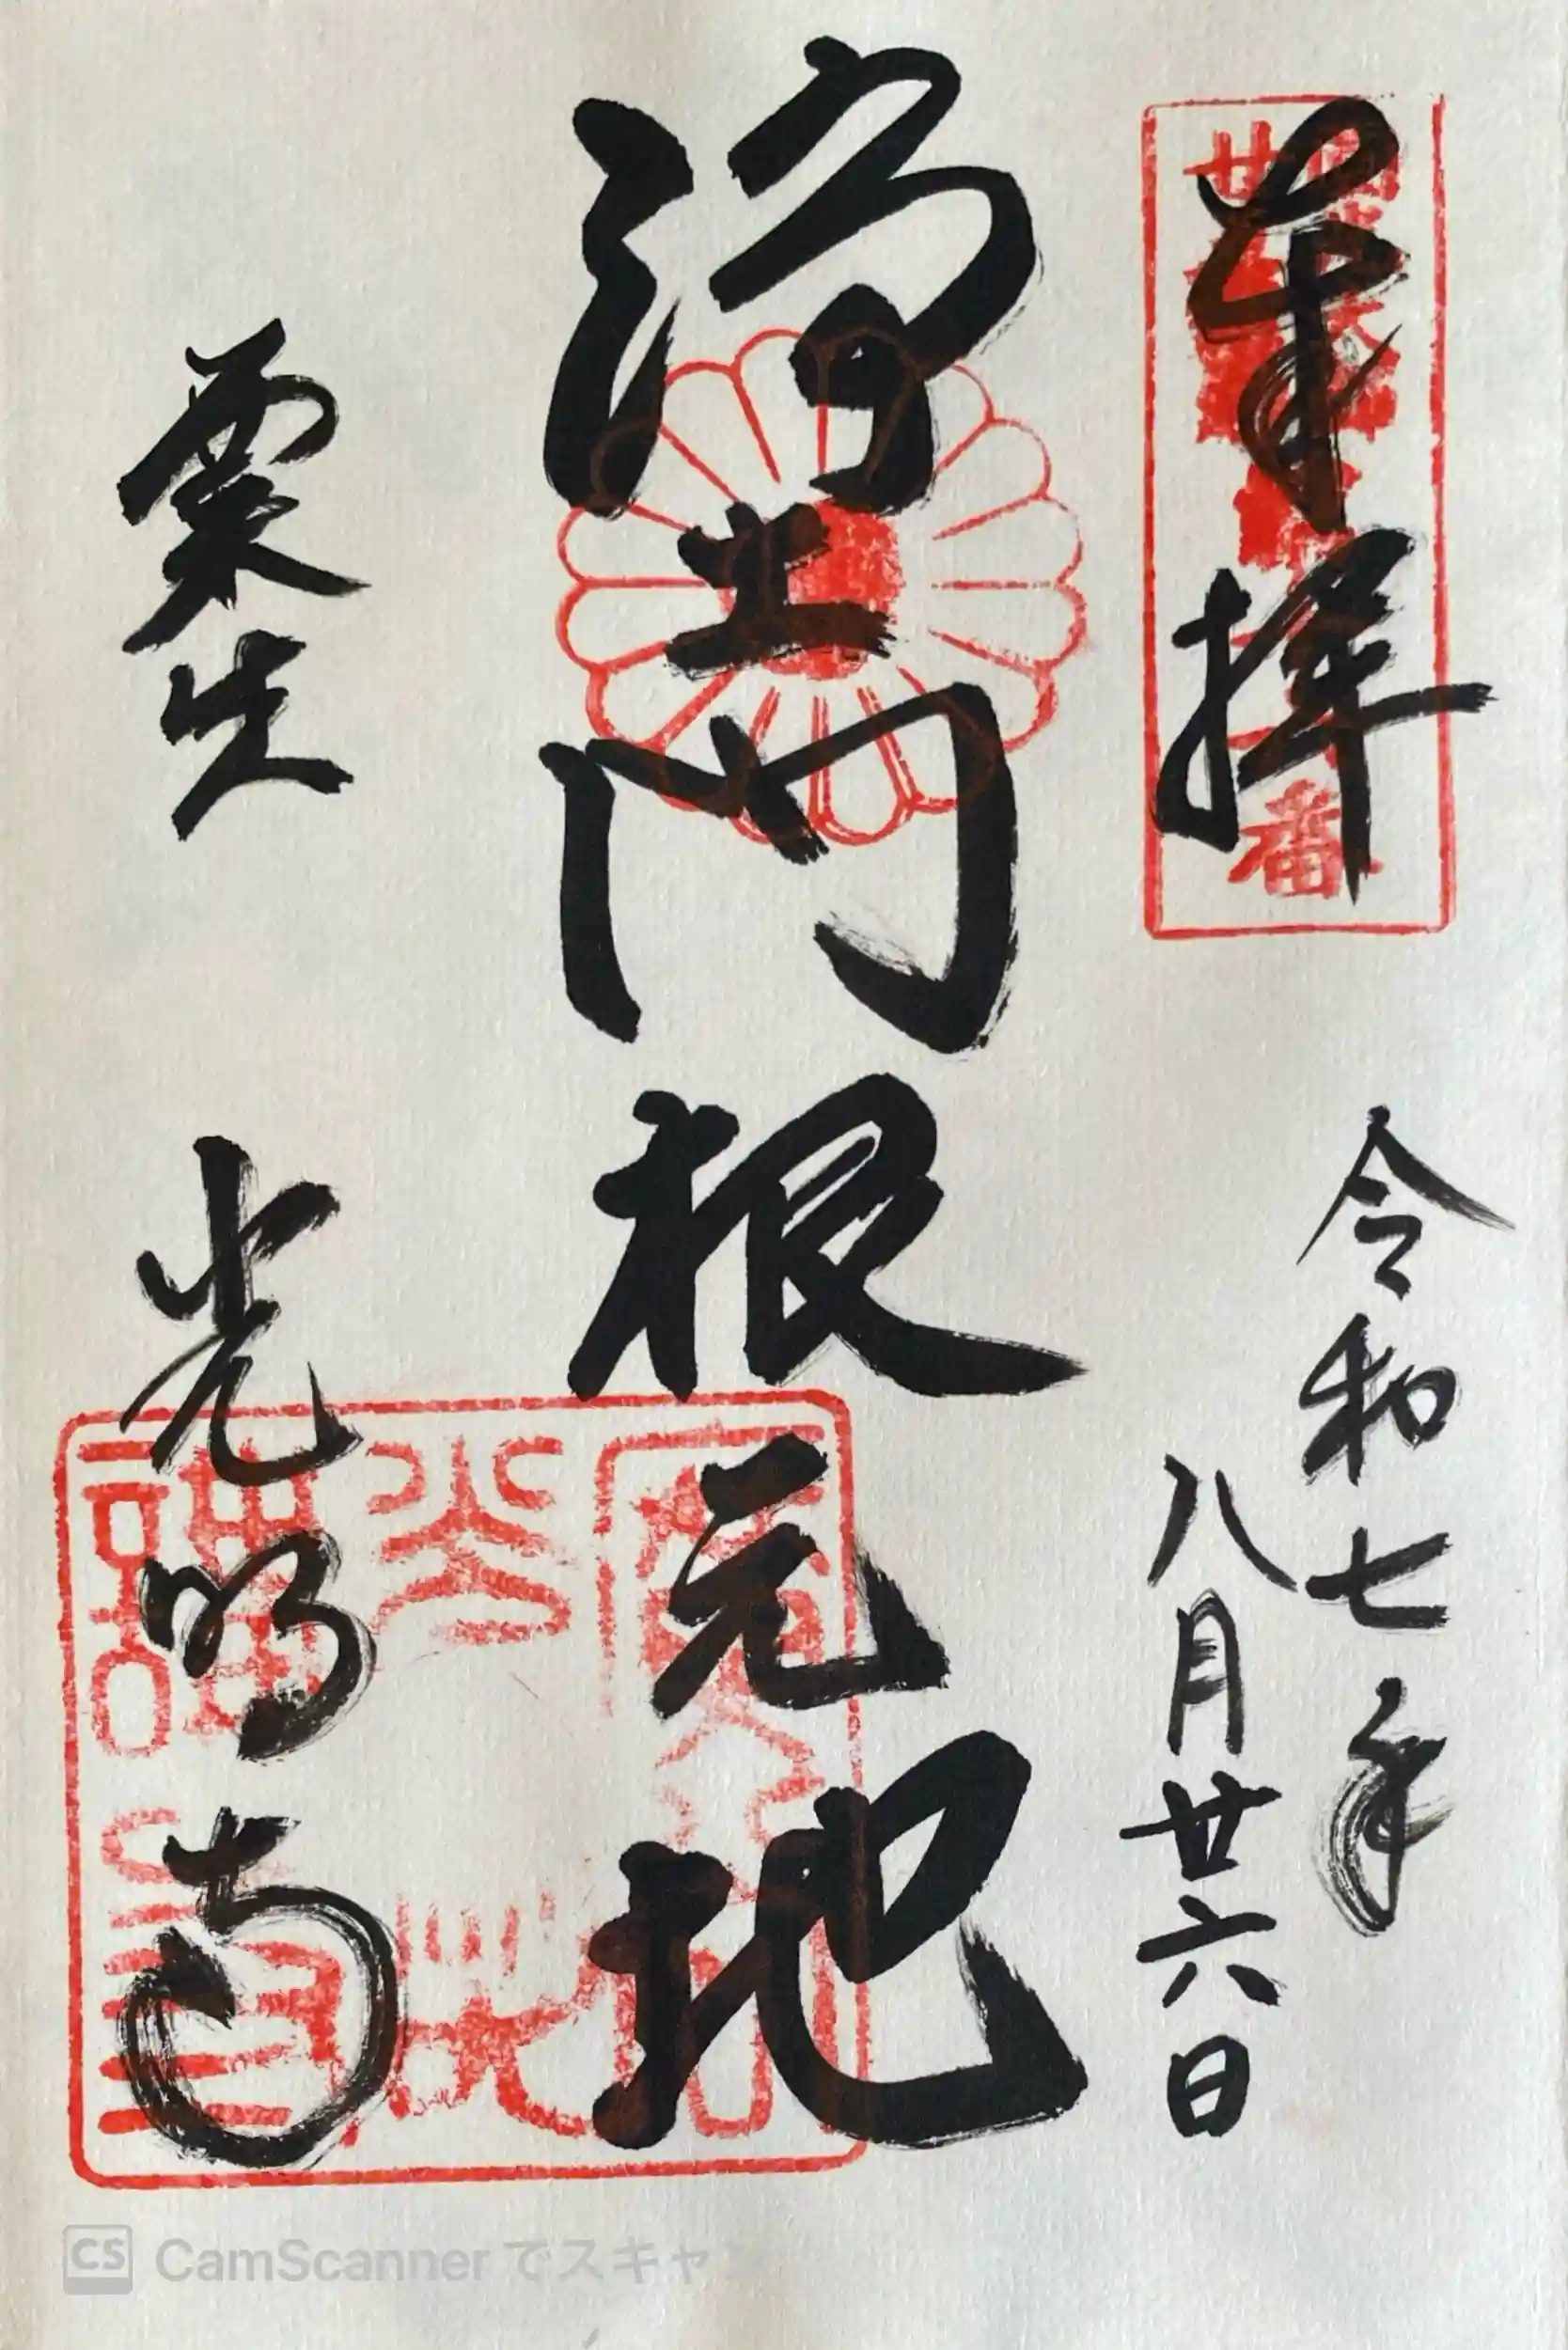 奉拝
令和七年
八月廿六日
浄土門根元地
粟生
光明寺
CamScanner でスキャン